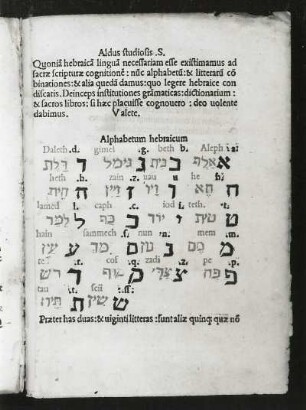 Aldus studiosis .S.
Quoniã hebraicã linguã necessariam esse existimamus ad
sacræ scripturæ cognitionẽ: nũc alphabetũ: & litterarũ cõ
binationes: & alia quedã damus: quo legere hebraice con
discatis. Deinceps institutiones grãmaticas: dictionarium:
& sacros libros: si hæc placuisse cognouero: deo uolente
dabimus. Valete.
Alphabetum hebraicum
Daleth .d. gimel .g. beth b. Aleph
ד דלת ג גימל ב בית א אלף
heth .h. zain .z. uau u he h.
ח חית ז זין ו ויו ה הא
lamed l. caph .c. iod i. teth t.
ל למד כ כף י יוד ט טית
hain sammech .s. nun .n. mem .m.
ע עין ס סמך נ נון מ מם
res .r. cof .q. zadi .z. pe .p.
ר רש ק קוף צ צדי פ פה
tau .t. scii .ſſ.
ת תיו ש שין
Præter has duas: & uiginti litteras: sunt aliæ quinq; quæ nõ